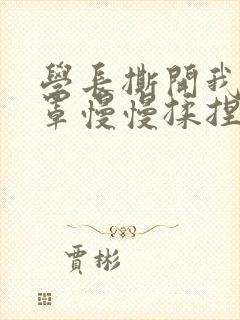 學長撕開我
罩慢慢揉捏
賈彬